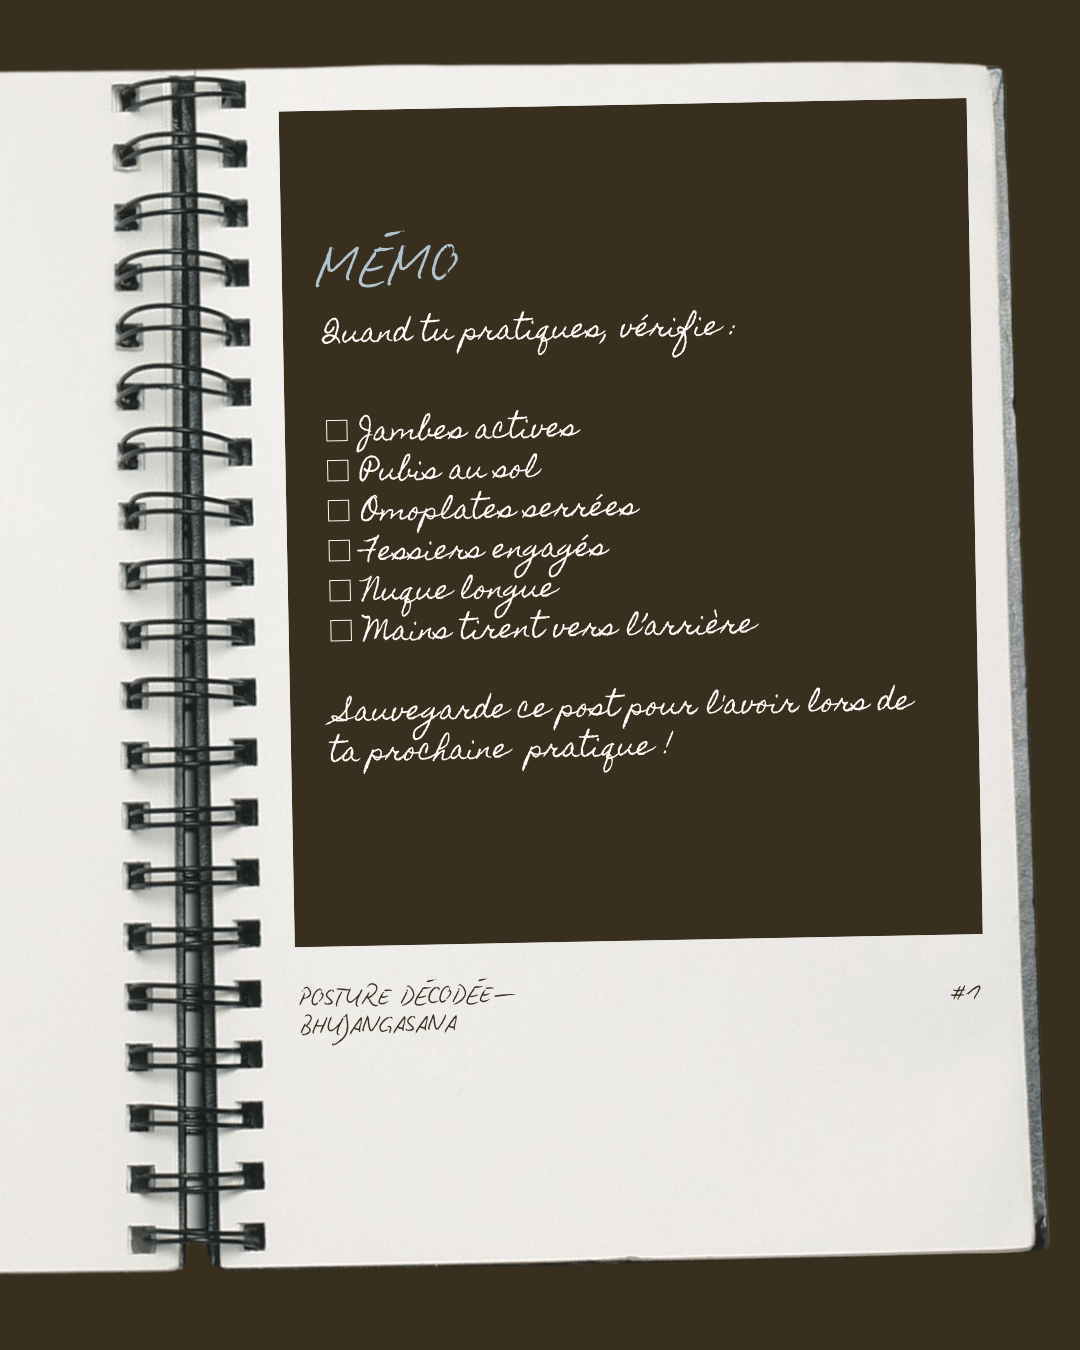 MÉMO
Quand tu pratiques, vérifie :
☐ Jambes actives
☐ Pubis au sol
☐ Omoplates serrées
☐ Fessiers engagés
☐ Nuque longue
☐ Mains tirent vers l'arrière
Sauvegarde ce post pour l'avoir lors de
ta prochaine pratique !
POSTURE DÉCODÉE—
BHUJANGASANA
#1